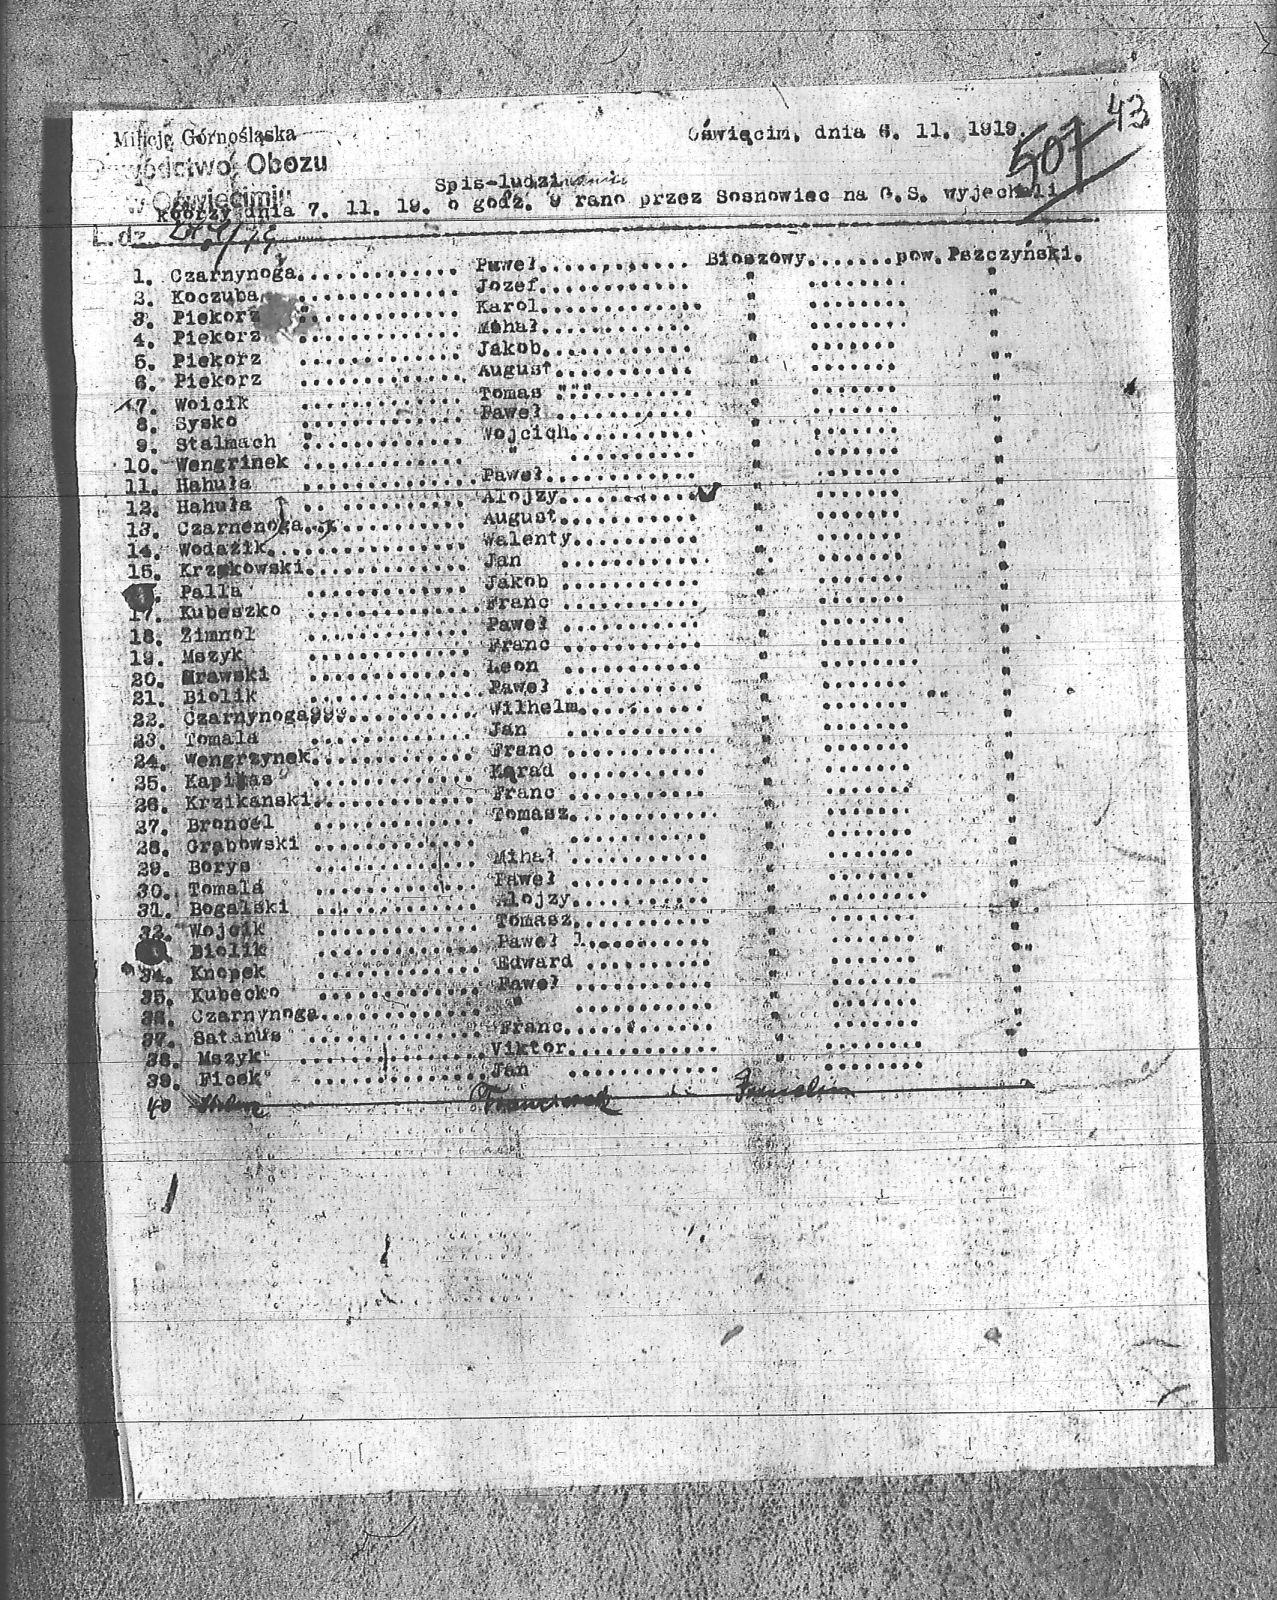 43
Milicje Górnośląska
Oświęcim, dnia 6. 11. 1919.
507
Dowództwo Obozu
w Oświęcimiu
Spis-ludzi
którzy dnia 7. 11. 19. o godz. 9 rano przez Sosnowiec na G.S. wyjechali
L.dz.
1. Czarnynoga............. Paweł............ Bioszowy.......pow. Pszczyński.
2. Koczuba ............. Jozef............ " ....... "
3. Piekorz ............. Karol............ " ....... "
4. Piekorz ............. Mihał............ " ....... "
5. Piekorz ............. Jakob............ " ....... "
6. Piekorz ............. August........... " ....... "
7. Woicik ............. Tomas ........... " ....... "
8. Sysko ............. Paweł ........... " ....... "
9. Stalmach ............. Wojcich.......... " ....... "
10. Wengrinek ............. " ........... " ....... "
11. Hahuła ............. Paweł............ " ....... "
12. Hahuła ............. Alojzy........... " ....... "
13. Czarnenoga............. August........... " ....... "
14. Wodazik................ Walenty.......... " ....... "
15. Krzykowski............. Jan ........... " ....... "
Palla ............. Jakob ........... " ....... "
17. Kubeszko ............. Franc ........... " ....... "
18. Zimnol ............. Paweł ........... " ....... "
19. Mszyk ............. Franc ........... " ....... "
20. Mrawski ............. Leon ........... " ....... "
21. Biolik ............. Paweł ........... " ....... "
22. Czarnynoga............. Wilhelm.......... " ....... "
23. Tomala ............. Jan ........... " ....... "
24. Wengrzynek............. Franc ........... " ....... "
25. Kapitas ............. Korad ........... " ....... "
26. Krzikanski............. Franc ........... " ....... "
27. Broncel ............. Tomasz........... " ....... "
28. Grabowski ............. " ........... " ....... "
29. Borys ............. Mihał ........... " ....... "
30. Tomala ............. Paweł ........... " ....... "
31. Bogalski ............. Alojzy........... " ....... "
32. Wojcik ............. Tomasz........... " ....... "
Biolik ............. Paweł 1.......... " ....... "
34. Knopek ............. Edward .......... " ....... "
35. Kubecko ............. Paweł ........... " ....... "
36. Czarnynoga............. " ........... " ....... "
37. Satanus ............. Franc............ " ....... "
38. Mszyk ............. Viktor........... " ....... "
39. Ficek ............. Jan ........... " ....... "
40 Franciszek